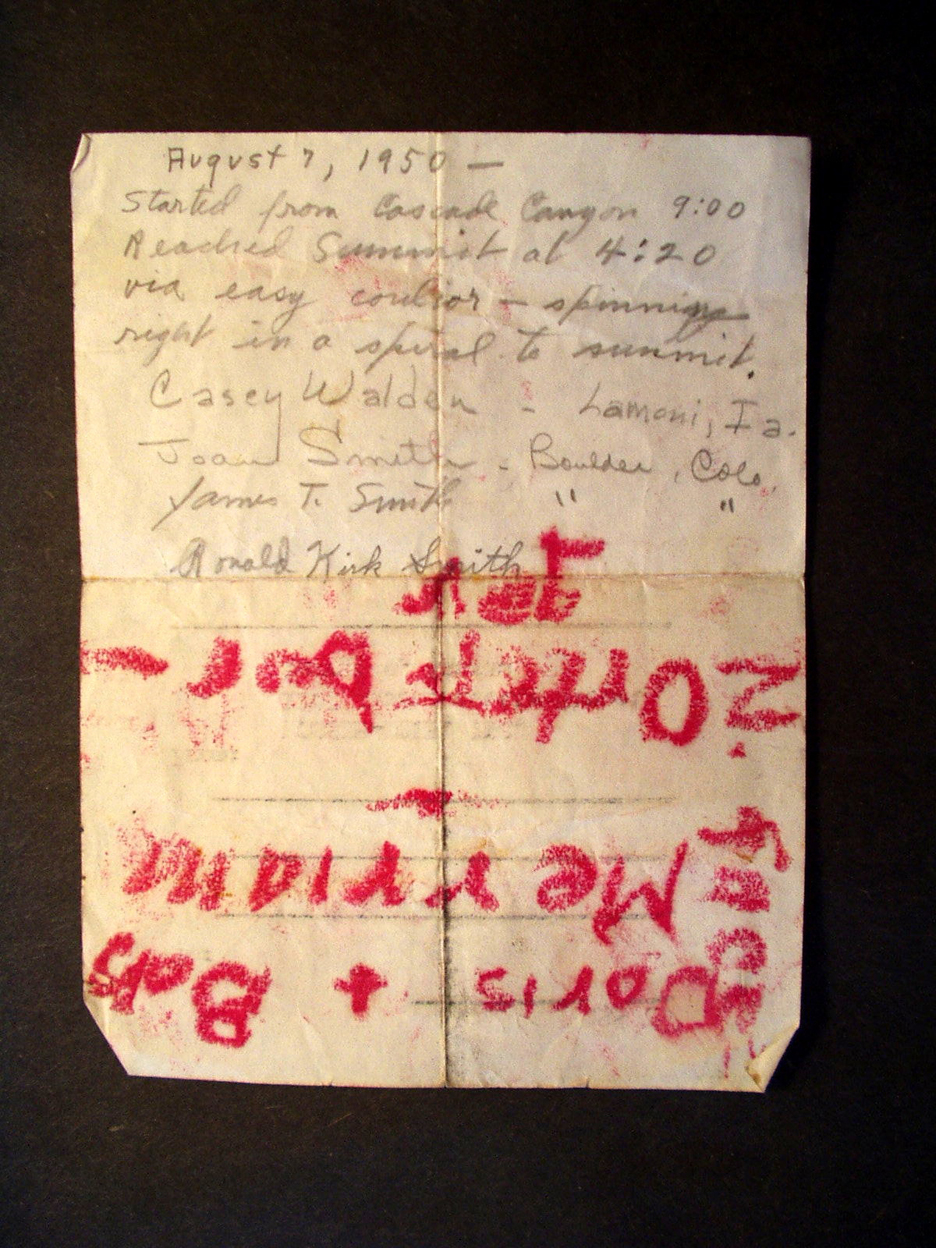 August 7, 1950 —
Started from Cascade Canyon 9:00
Reached Summit at 4:20
via easy coulior — spinning
right in a spiral to summit.
Casey Walden - Lamoni, Ia.
Joan Smith - Boulder, Colo.
James T. Smith " "
Ronald Kirk Smith
Doris + Bob
Merriam